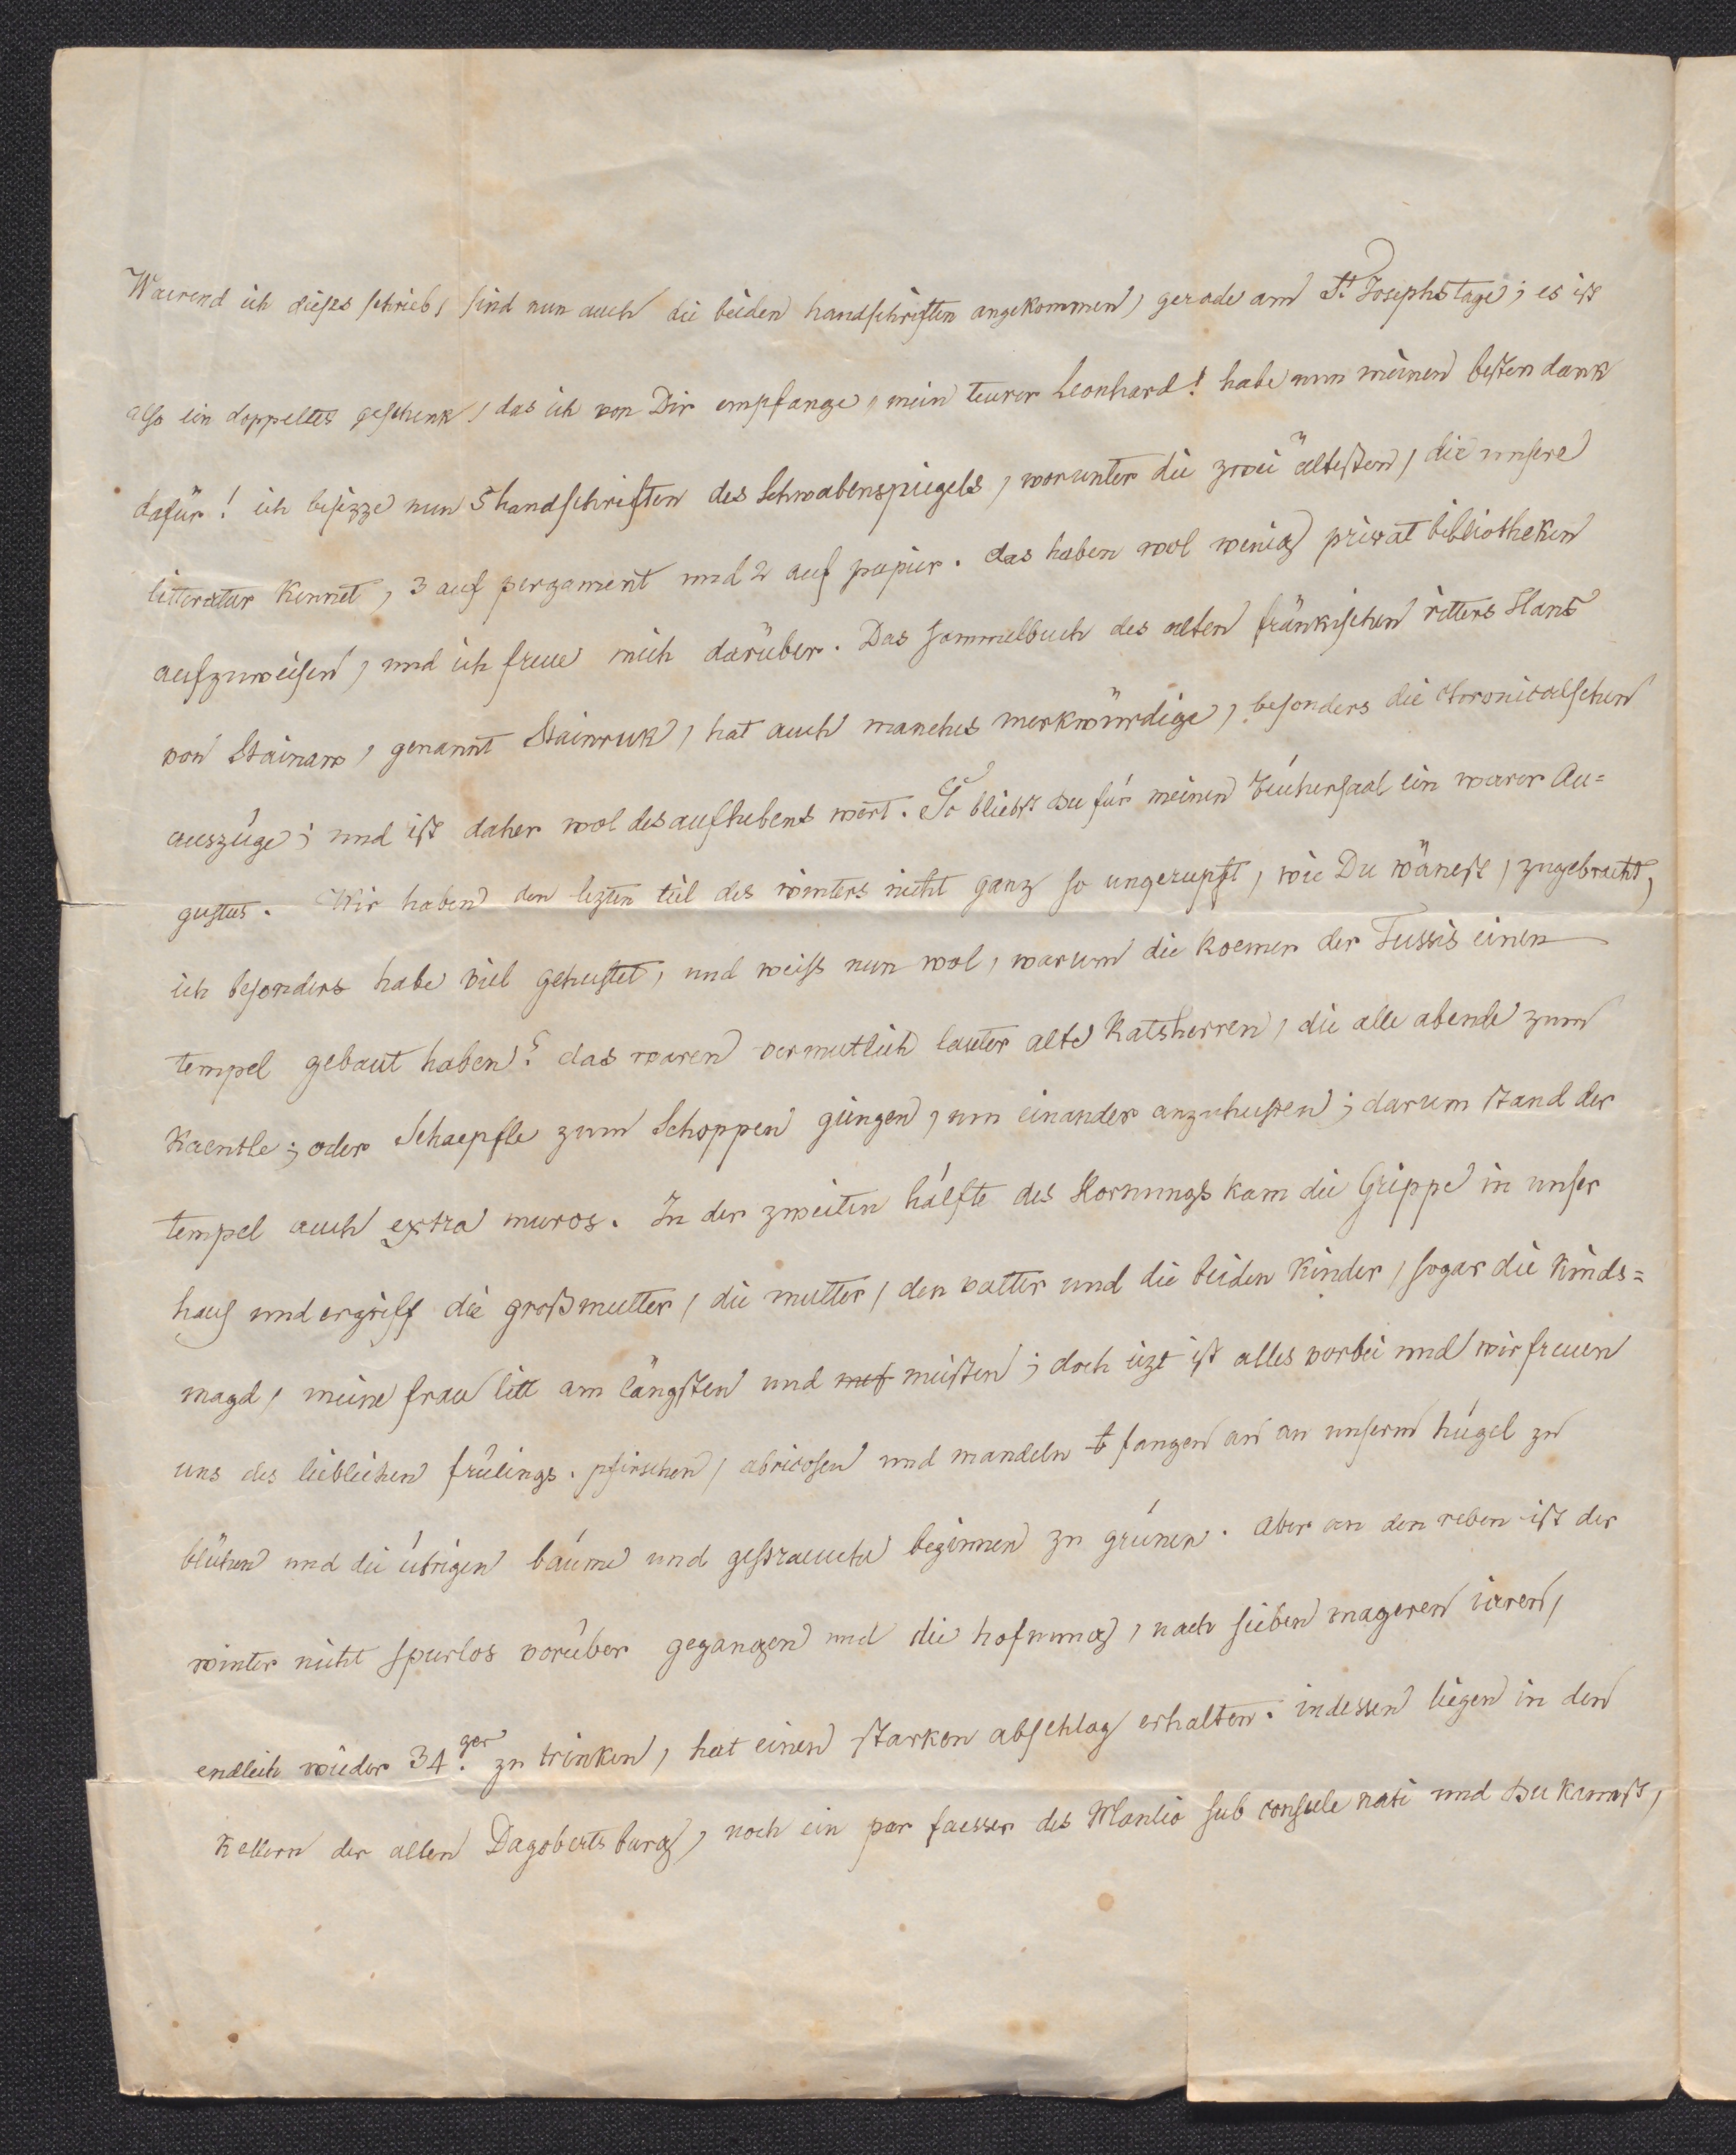 Waerend ich dieses schrieb, sind nun auch die beiden handschriften angekommen, gerade am St. Josephstage; es ist
also ein doppeltes geschenk, das ich von Dir empfange, mein teurer Leonhard! habe nun meinen besten dank
dafür! ich besizze nun 5 handschriften des Schwabenspiegels, worunter die zwei ältesten, die unsere
litteratur kennet, 3 auf pergament und 2 auf papier. das haben wol wenig privat bibliotheken
aufzuweisen, und ich freue mich darüber. Das sammelbuch des alten fränkischen ritters Hans
von Stainaw, genannt Stainruk, hat auch manches merkwürdige, besonders die chronicalschen
auszüge; und ist daher wol des aufhebens wert. So bliebst Du für meinen büchersaal ein warer Au=
gustus. Wir haben den lezten teil des winters nicht ganz so ungerupft, wie Du wänest, zugebracht,
ich besonders habe viel gehustet, und weiss nun wol, warum die Roemer der Tussis einen
tempel gebaut haben? das waren vermutlich lauter alte Ratsherren, die alle abende zum
Kaentle; oder Schaepfle zum Schoppen giengen, um einander anzuhusten; darum stand der
tempel auch extra muros. In der zweiten hälfte des Hornungs kam die Grippe in unser
haus und ergriff die großmutter, die mutter, den vatter und die beiden kinder, sogar die kinds=
magd, meine frau litt am längsten und meisten; doch izt ist alles vorbei und wir freuen
uns des lieblichen frülings. pfirschen, abricosen und mandeln fangen an an unserm hügel zu
blühen und die übrigen bäume und gestraeuche beginnen zu grünen. aber an den reben ist der
winter nicht spurlos vorüber gegangen und die hofnung, nach sieben mageren iaren,
endlich wieder 34.ger zu trinken, hat einen starken abschlag erhalten. indessen liegen in den
kellern der alten Dagobertsburg, noch ein par faesser des Manlio sub consule nati und Du kannst,